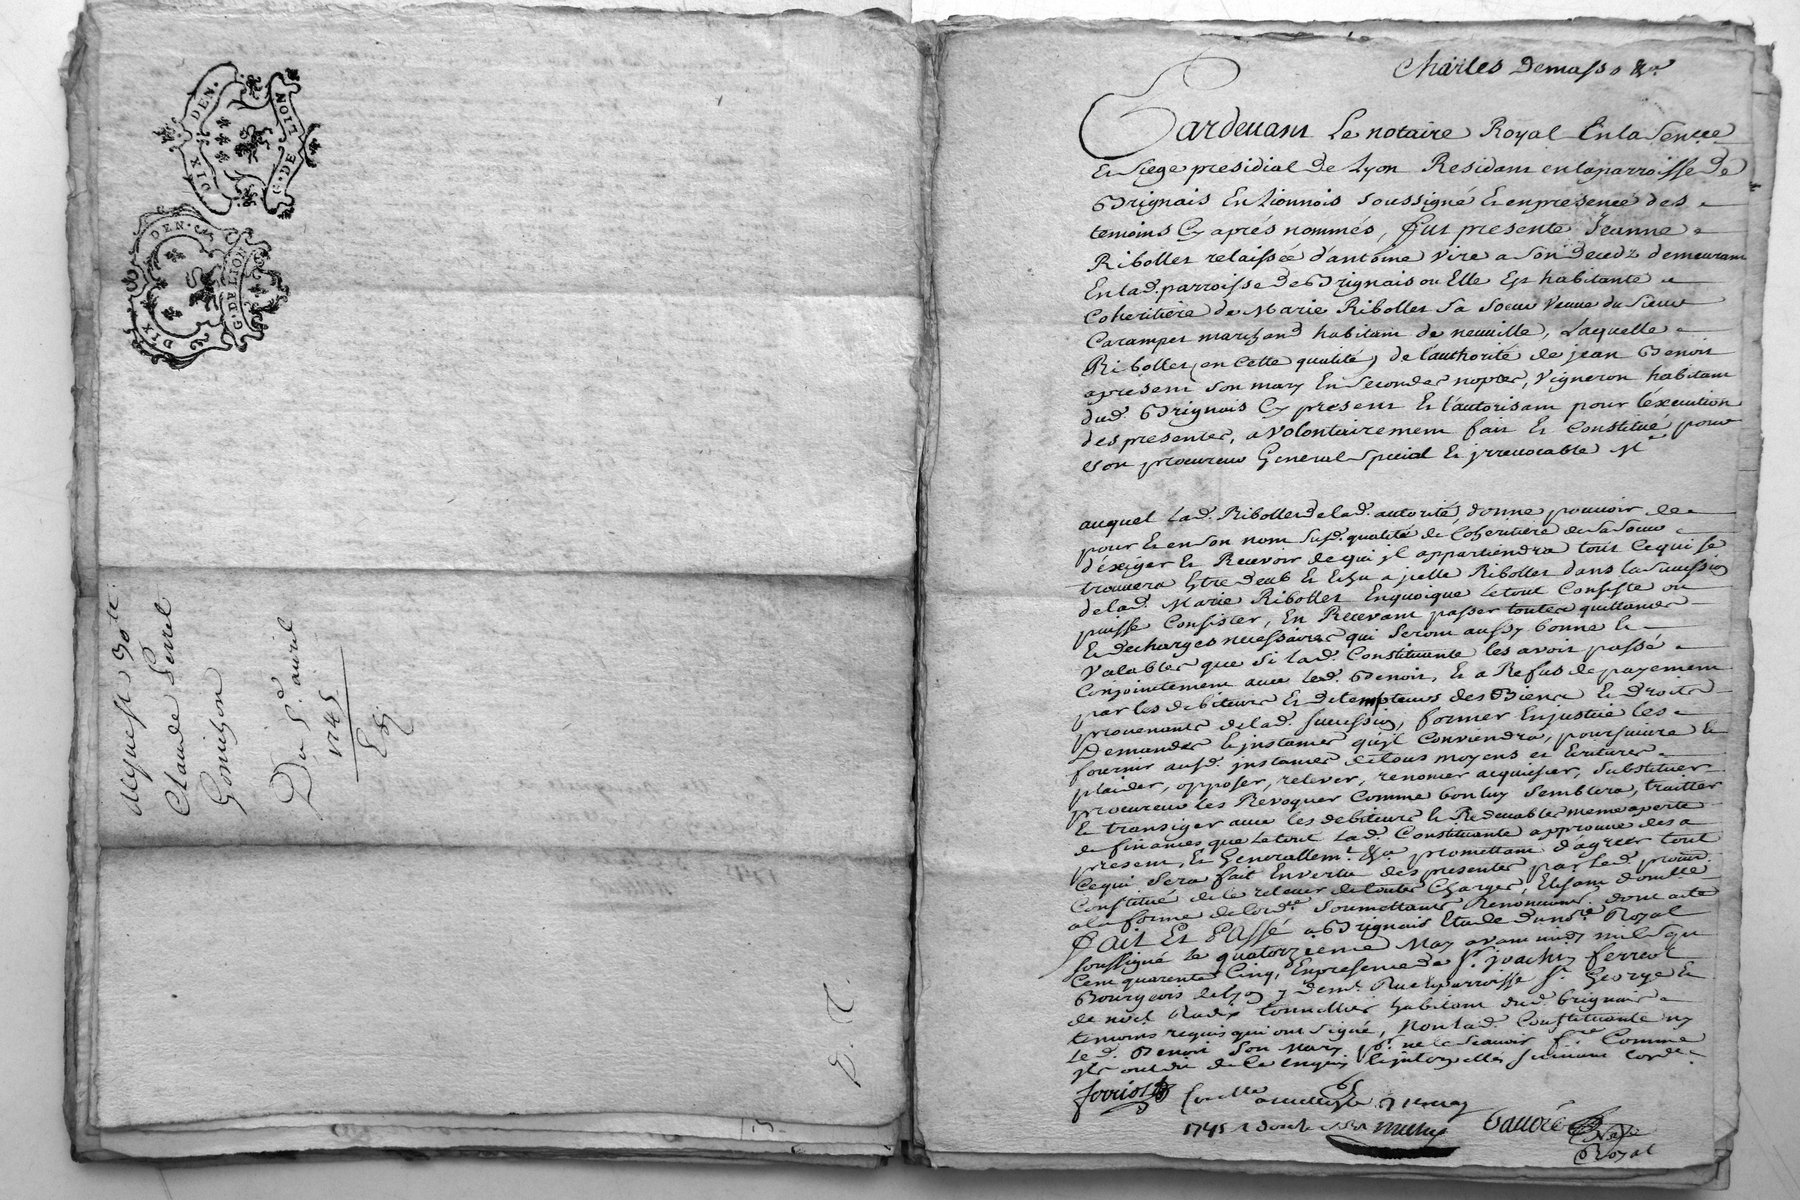 DIX DEN.
G. DE LION
DIX DEN.
G. DE LION
Claude
Du 5e. auril
1745
Charles Demasso &a.
Pardeuant Le notaire Royal En la Sencee
Et Siege presidial de Lyon Residant en la parroisse de
Brignais En Lionnois soussigné Et en presence des
temoins Cy aprés nommés, fut presente Jeanne
Ribollet relaissée d'antoine Vire a Son Decedz demeurant
En lad. parroisse de Brignais ou Elle Est habitante
Coheritiere de Marie Ribollet Sa Soeur Veuue du Sieur
Carampet marchand habitant de neuuille, Laquelle
Ribollet, en Cette qualité, de l'authorité de jean Benoit
apresent Son mary En Secondes nopces, Vigneron habitant
dud. Brignais Cy present Et l'autorisant pour l'éxecution
des presentes, a Volontairement fait Et Constitué pour
Son procureur General Special Et jrreuocable Me
auquel Lad. Ribollet de lad. autorité, donne pouuoir de
pour Et en Son nom Susd. qualité de Coheritiere de Sa Soeur
d'éxiger Et Receuoir de qui jl appartiendra tout Cequi Se
trouuera Estre deub Et Echu a jcelle Ribollet dans la Succession
de lad. Marie Ribollet En quoique Le tout Consiste ou
puisse Consister, En Receuant passer toutes quittances
Et decharges necessaires qui Seront aussy bonne Et
Valables que Si Lad. Constituante les auoit passé
Conjointement auec Led. Benoit, Et a Refus de payement
par les debiteurs Et detempteurs des Biens Et Droits
prouenants de lad. Succession, former En justice les
Demandes Et jnstances qu'jl Conviendra, poursuiure Et
fournir ausd. jnstances de tous moyens et Ecritures
plaider, opposer, relever, renoncer acquiesser, Substituer
procureur les Revoquer Comme bon luy Semblera, traitter
Et transiger auec les debiteurs Et Redeuables meme a perte
de finances que Le tout Lad. Constituante approuue des a
present, Et Generallemt. &a. promettant d'agréer tout
Cequi Sera fait En vertu des presentes par Led. procur.
Constitué de le releuer de toutes Charges,
a la forme de l'ord.re Soumettants Renonciants dont acte
Fait Et Passé a Brignais Etude du no.re Royal
Soussigné Le quatorzieme May avant midy mil Sept
Cent quarente Cinq, En presence de Sr. joachin ferreol
Bourgeois de Lyon y demt. Rue Et parroisse St. George Et
de noel tonnellier habitant dud. brignais
temoins requis qui ont Signé, Non Lad. Constituante ny
Le d. Benoit Son Mary pr. ne le Scauoir fre. Comme
jls ont dit de Ce Enquis Et jnterpellés Suiuant l'orde.
1745
Royal